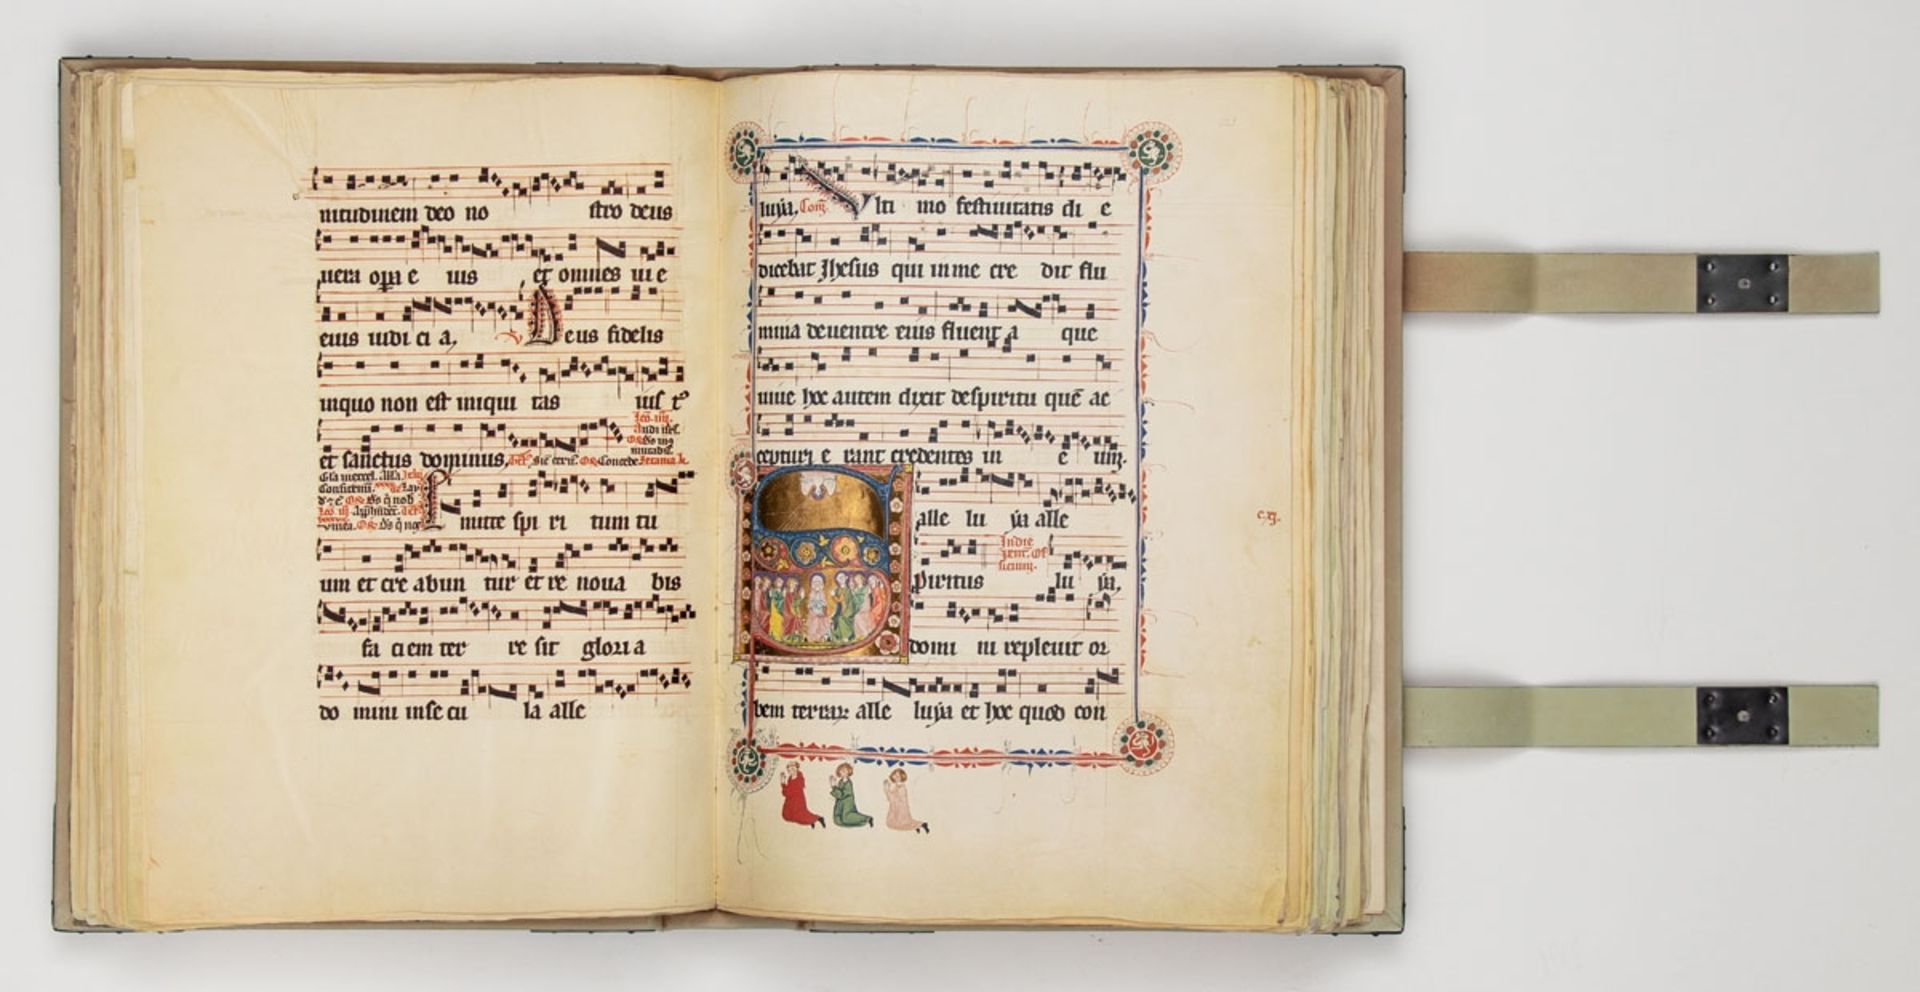 nitudinem deo no stro deus
uera opera e ius et omnes uie
eius iudi ci a, V Deus fidelis
inquo non est iniqui tas iust
et sanctus dominus,
Emitte spi ri tum tu
um et cre abun tur et re noua bis
fa ciem ter re sit glori a
do mini infecu la alle
luya. Com Vlti mo festiuitatis di e
dicebat Jhesus qui in me cre dit flu
mina deuentre eius fluent a que
uiue hoc autem dixit despiritu quē ac
cepturi e rant credentes in e um.
alle lu ya alle
Spiritus lu ya,
domi ni repleuit or
bem terrar alle luya et hoc quod con